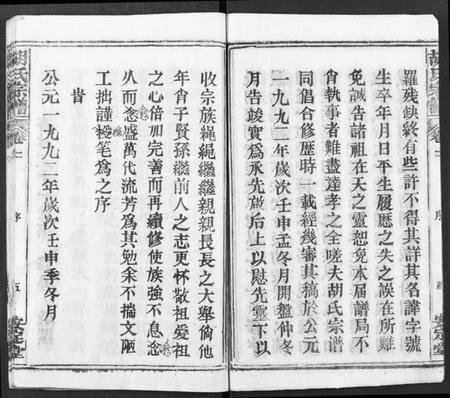 羅残缺終有些許不得其詳其名諱字號
生卒年月日平生履歷之失之誤在所難
免誠告諸祖在天之靈恕免本届譜局不
肖執事者難盡達孝之全嗟夫胡氏宗譜
同倡合修歷時一載經幾審其稿於公元
一九九二年歲次壬申孟冬月開盤仲冬
月告竣實爲承先啟后上以慰先靈下以
收宗族繩繩繼繼親親長長之大舉倘他
年肖子賢孫繼前人之志更怀敬祖爱祖
之心倍加完善而再續修使族強不息念
久而念盛萬代流芳爲其勉余不揣文陋
工拙謹授笔爲之序
旹
公元一九九二年歲次壬申季冬月
胡氏宗譜
卷十
序
五
安定堂